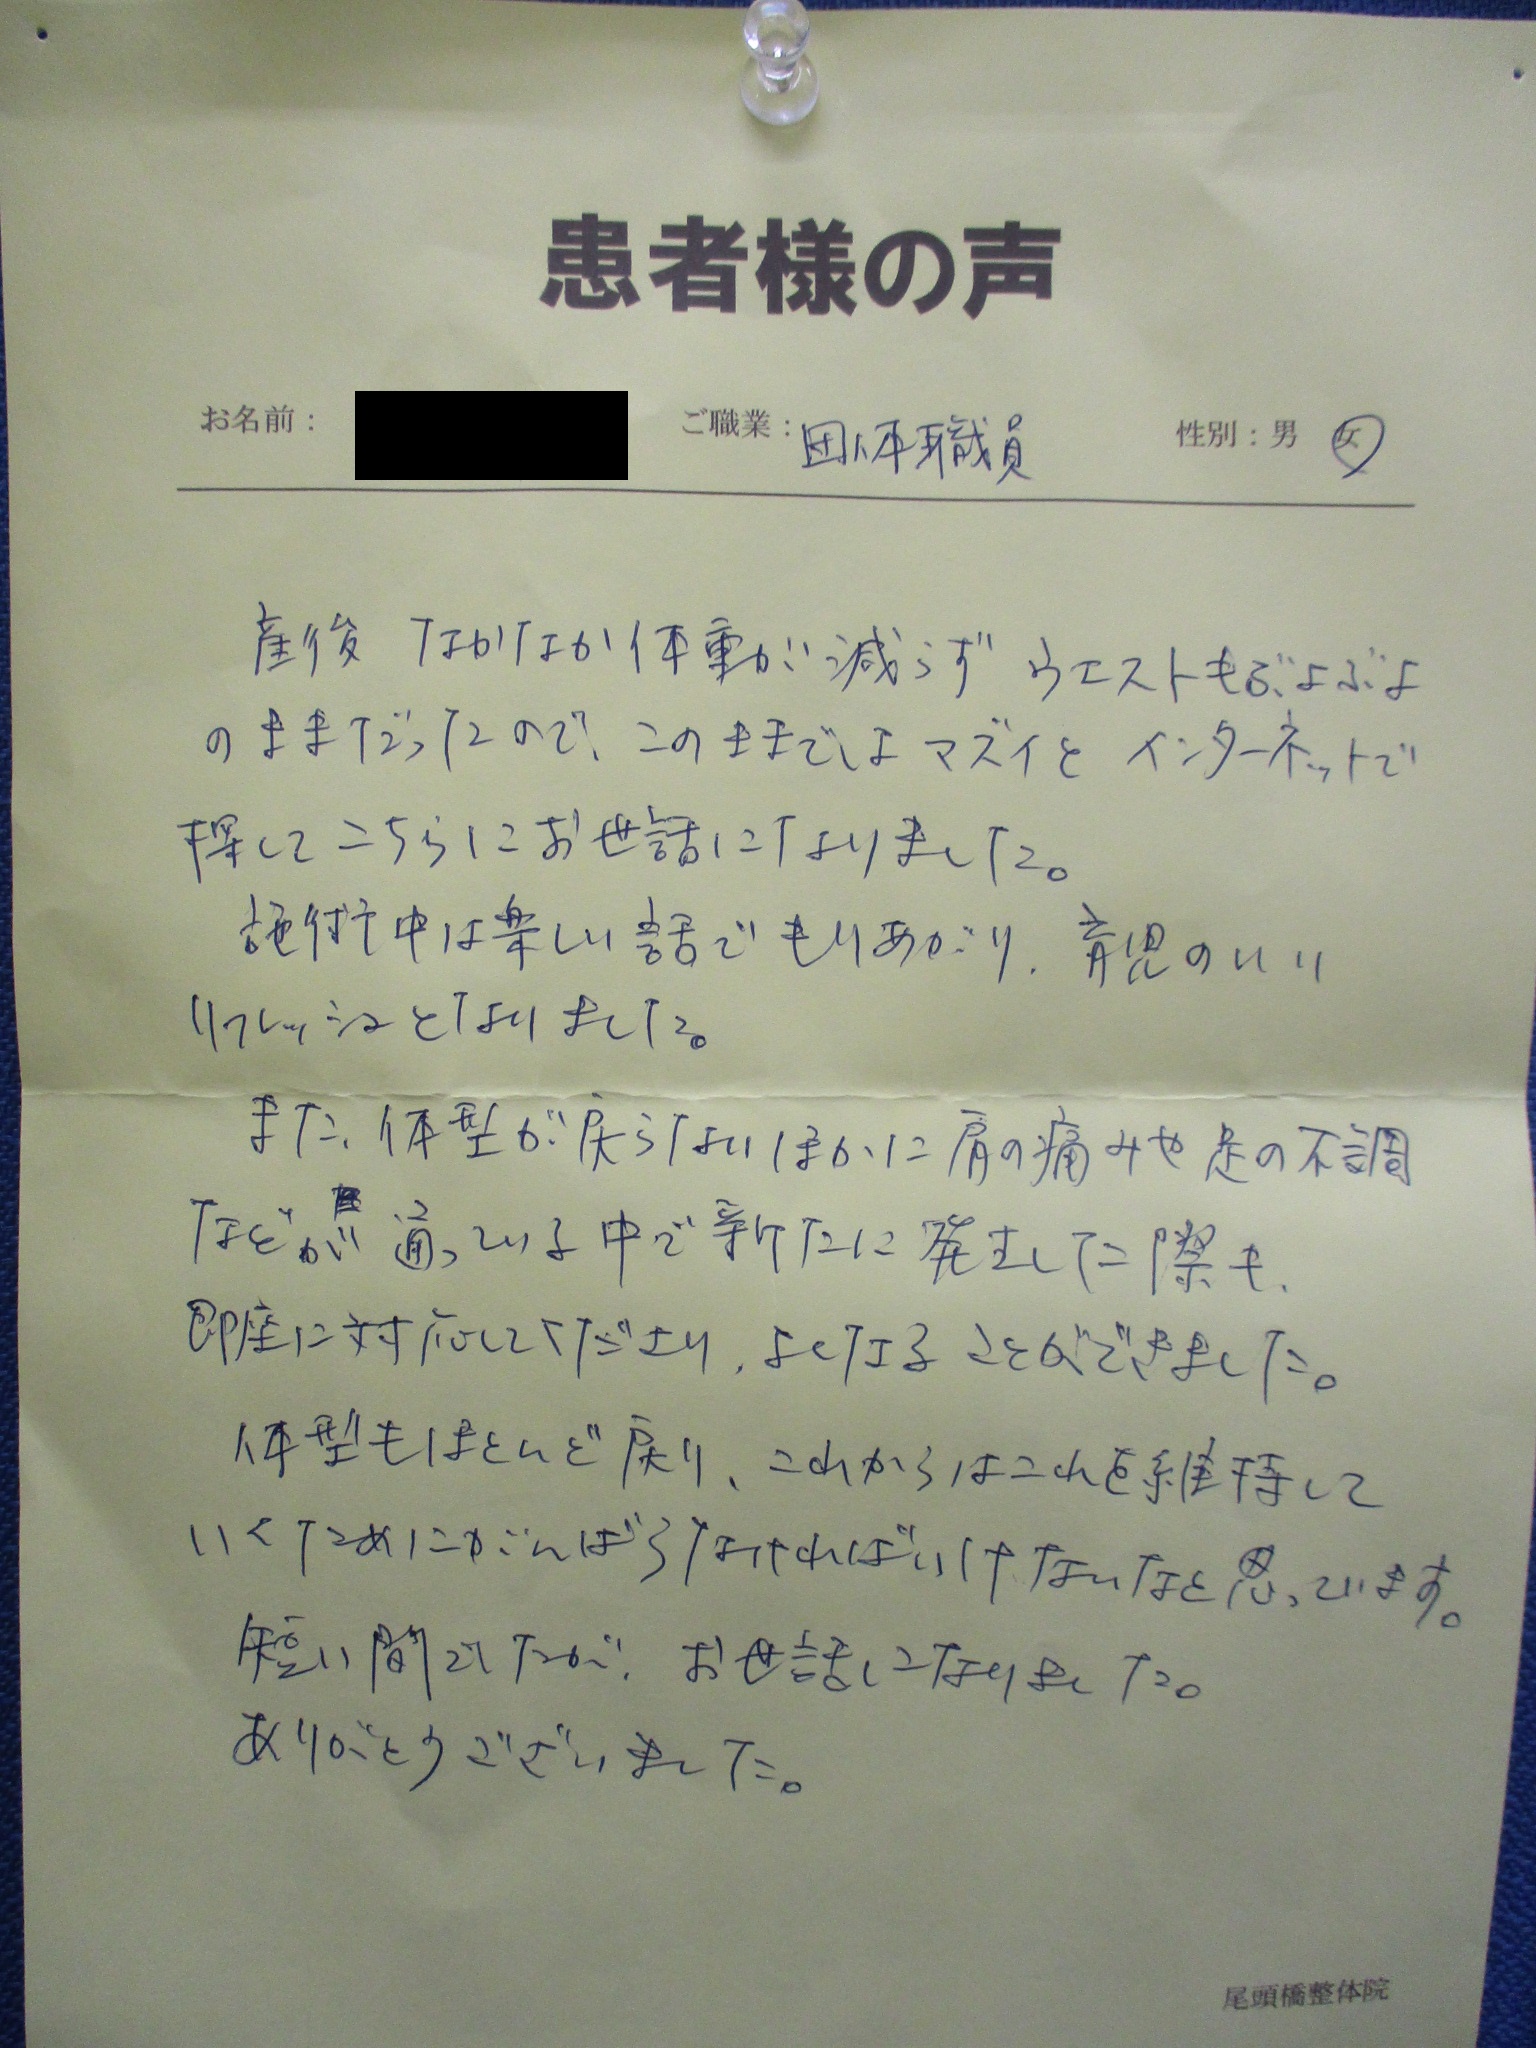 患者様の声
お名前： ご職業：団体職員 性別：男 女
産後 なかなか体重が減らず ウエストもぶよぶよ
のままだったので、このままではマズイと インターネットで
探してこちらにお世話になりました。
施術中は楽しい話でもりあがり、育児のいい
リフレッシュとなりました。
また、体型が戻らないほかに肩の痛みや足の不調
などが 通っている中で新たに発生した際も、
即座に対応してくださり、よくなることができました。
体型もほとんど戻り、これからはこれを維持して
いくためにがんばらなければいけないなと思っています。
短い間でしたが、お世話になりました。
ありがとうございました。
尾頭橋整体院